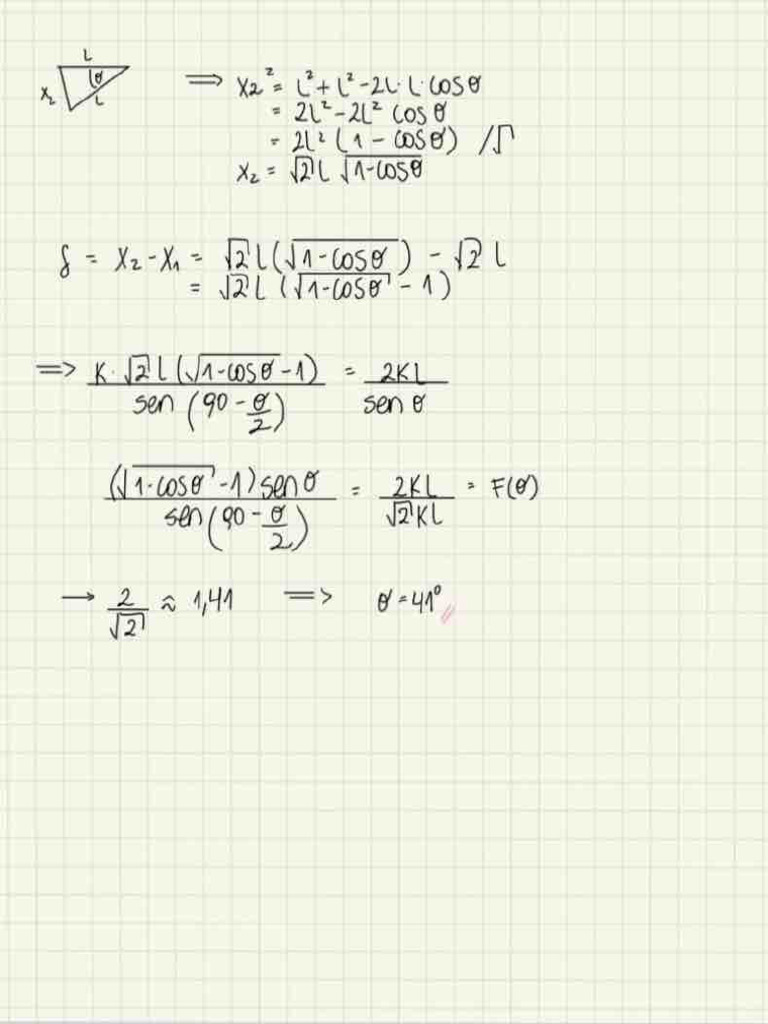 L
θ
x₂
L
=> x₂² = L² + L² - 2L·L·cosθ
= 2L² - 2L² cosθ
= 2L² (1 - cosθ) /√
x₂ = √2 L √1-cosθ
δ = x₂ - x₁ = √2 L (√1-cosθ) - √2 L
= √2 L (√1-cosθ - 1)
=> K·√2 L (√1-cosθ - 1) / sen (90 - θ/2) = 2KL / sen θ
(√1-cosθ - 1) sen θ / sen (90 - θ/2) = 2KL / √2 KL = F(θ)
→ 2/√2 ≈ 1,41 => θ = 41°